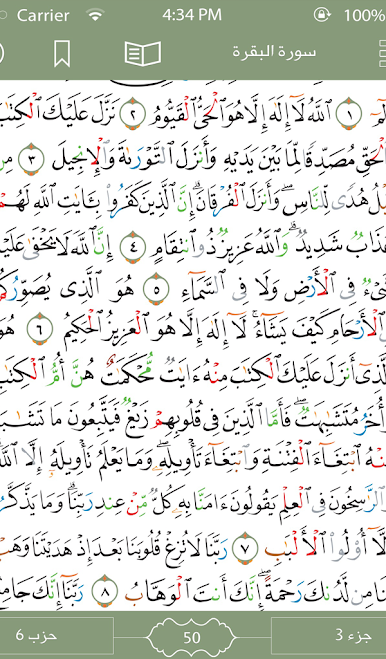 Carrier 4:34 PM 100%
سورة البقرة
١ ٱللَّهُ لَآ إِلَٰهَ إِلَّا هُوَ ٱلْحَىُّ ٱلْقَيُّومُ ٢ نَزَّلَ عَلَيْكَ ٱلْكِتَٰبَ
ٱلْحَقِّ مُصَدِّقًا لِّمَا بَيْنَ يَدَيْهِ وَأَنزَلَ ٱلتَّوْرَىٰةَ وَٱلْإِنجِيلَ ٣ مِن
بْلُ هُدًى لِّلنَّاسِ وَأَنزَلَ ٱلْفُرْقَانَ ۗ إِنَّ ٱلَّذِينَ كَفَرُوا۟ بِـَٔايَٰتِ ٱللَّهِ لَهُمْ
ذَابٌ شَدِيدٌ ۗ وَٱللَّهُ عَزِيزٌ ذُو ٱنتِقَامٍ ٤ إِنَّ ٱللَّهَ لَا يَخْفَىٰ عَلَيْهِ
ىْءٌ فِى ٱلْأَرْضِ وَلَا فِى ٱلسَّمَآءِ ٥ هُوَ ٱلَّذِى يُصَوِّرُكُمْ
ٱلْأَرْحَامِ كَيْفَ يَشَآءُ ۚ لَآ إِلَٰهَ إِلَّا هُوَ ٱلْعَزِيزُ ٱلْحَكِيمُ ٦ هُوَ
لَّذِىٓ أَنزَلَ عَلَيْكَ ٱلْكِتَٰبَ مِنْهُ ءَايَٰتٌ مُّحْكَمَٰتٌ هُنَّ أُمُّ ٱلْكِتَٰبِ
أُخَرُ مُتَشَٰبِهَٰتٌ ۖ فَأَمَّا ٱلَّذِينَ فِى قُلُوبِهِمْ زَيْغٌ فَيَتَّبِعُونَ مَا تَشَٰبَهَ
نْهُ ٱبْتِغَآءَ ٱلْفِتْنَةِ وَٱبْتِغَآءَ تَأْوِيلِهِۦ ۗ وَمَا يَعْلَمُ تَأْوِيلَهُۥٓ إِلَّا ٱللَّهُ
ٱلرَّٰسِخُونَ فِى ٱلْعِلْمِ يَقُولُونَ ءَامَنَّا بِهِۦ كُلٌّ مِّنْ عِندِ رَبِّنَا ۗ وَمَا يَذَّكَّرُ
لَّآ أُو۟لُوا۟ ٱلْأَلْبَٰبِ ٧ رَبَّنَا لَا تُزِغْ قُلُوبَنَا بَعْدَ إِذْ هَدَيْتَنَا وَهَبْ
نَا مِن لَّدُنكَ رَحْمَةً ۚ إِنَّكَ أَنتَ ٱلْوَهَّابُ ٨ رَبَّنَآ إِنَّكَ جَامِعُ
جزء 3 50 حزب 6